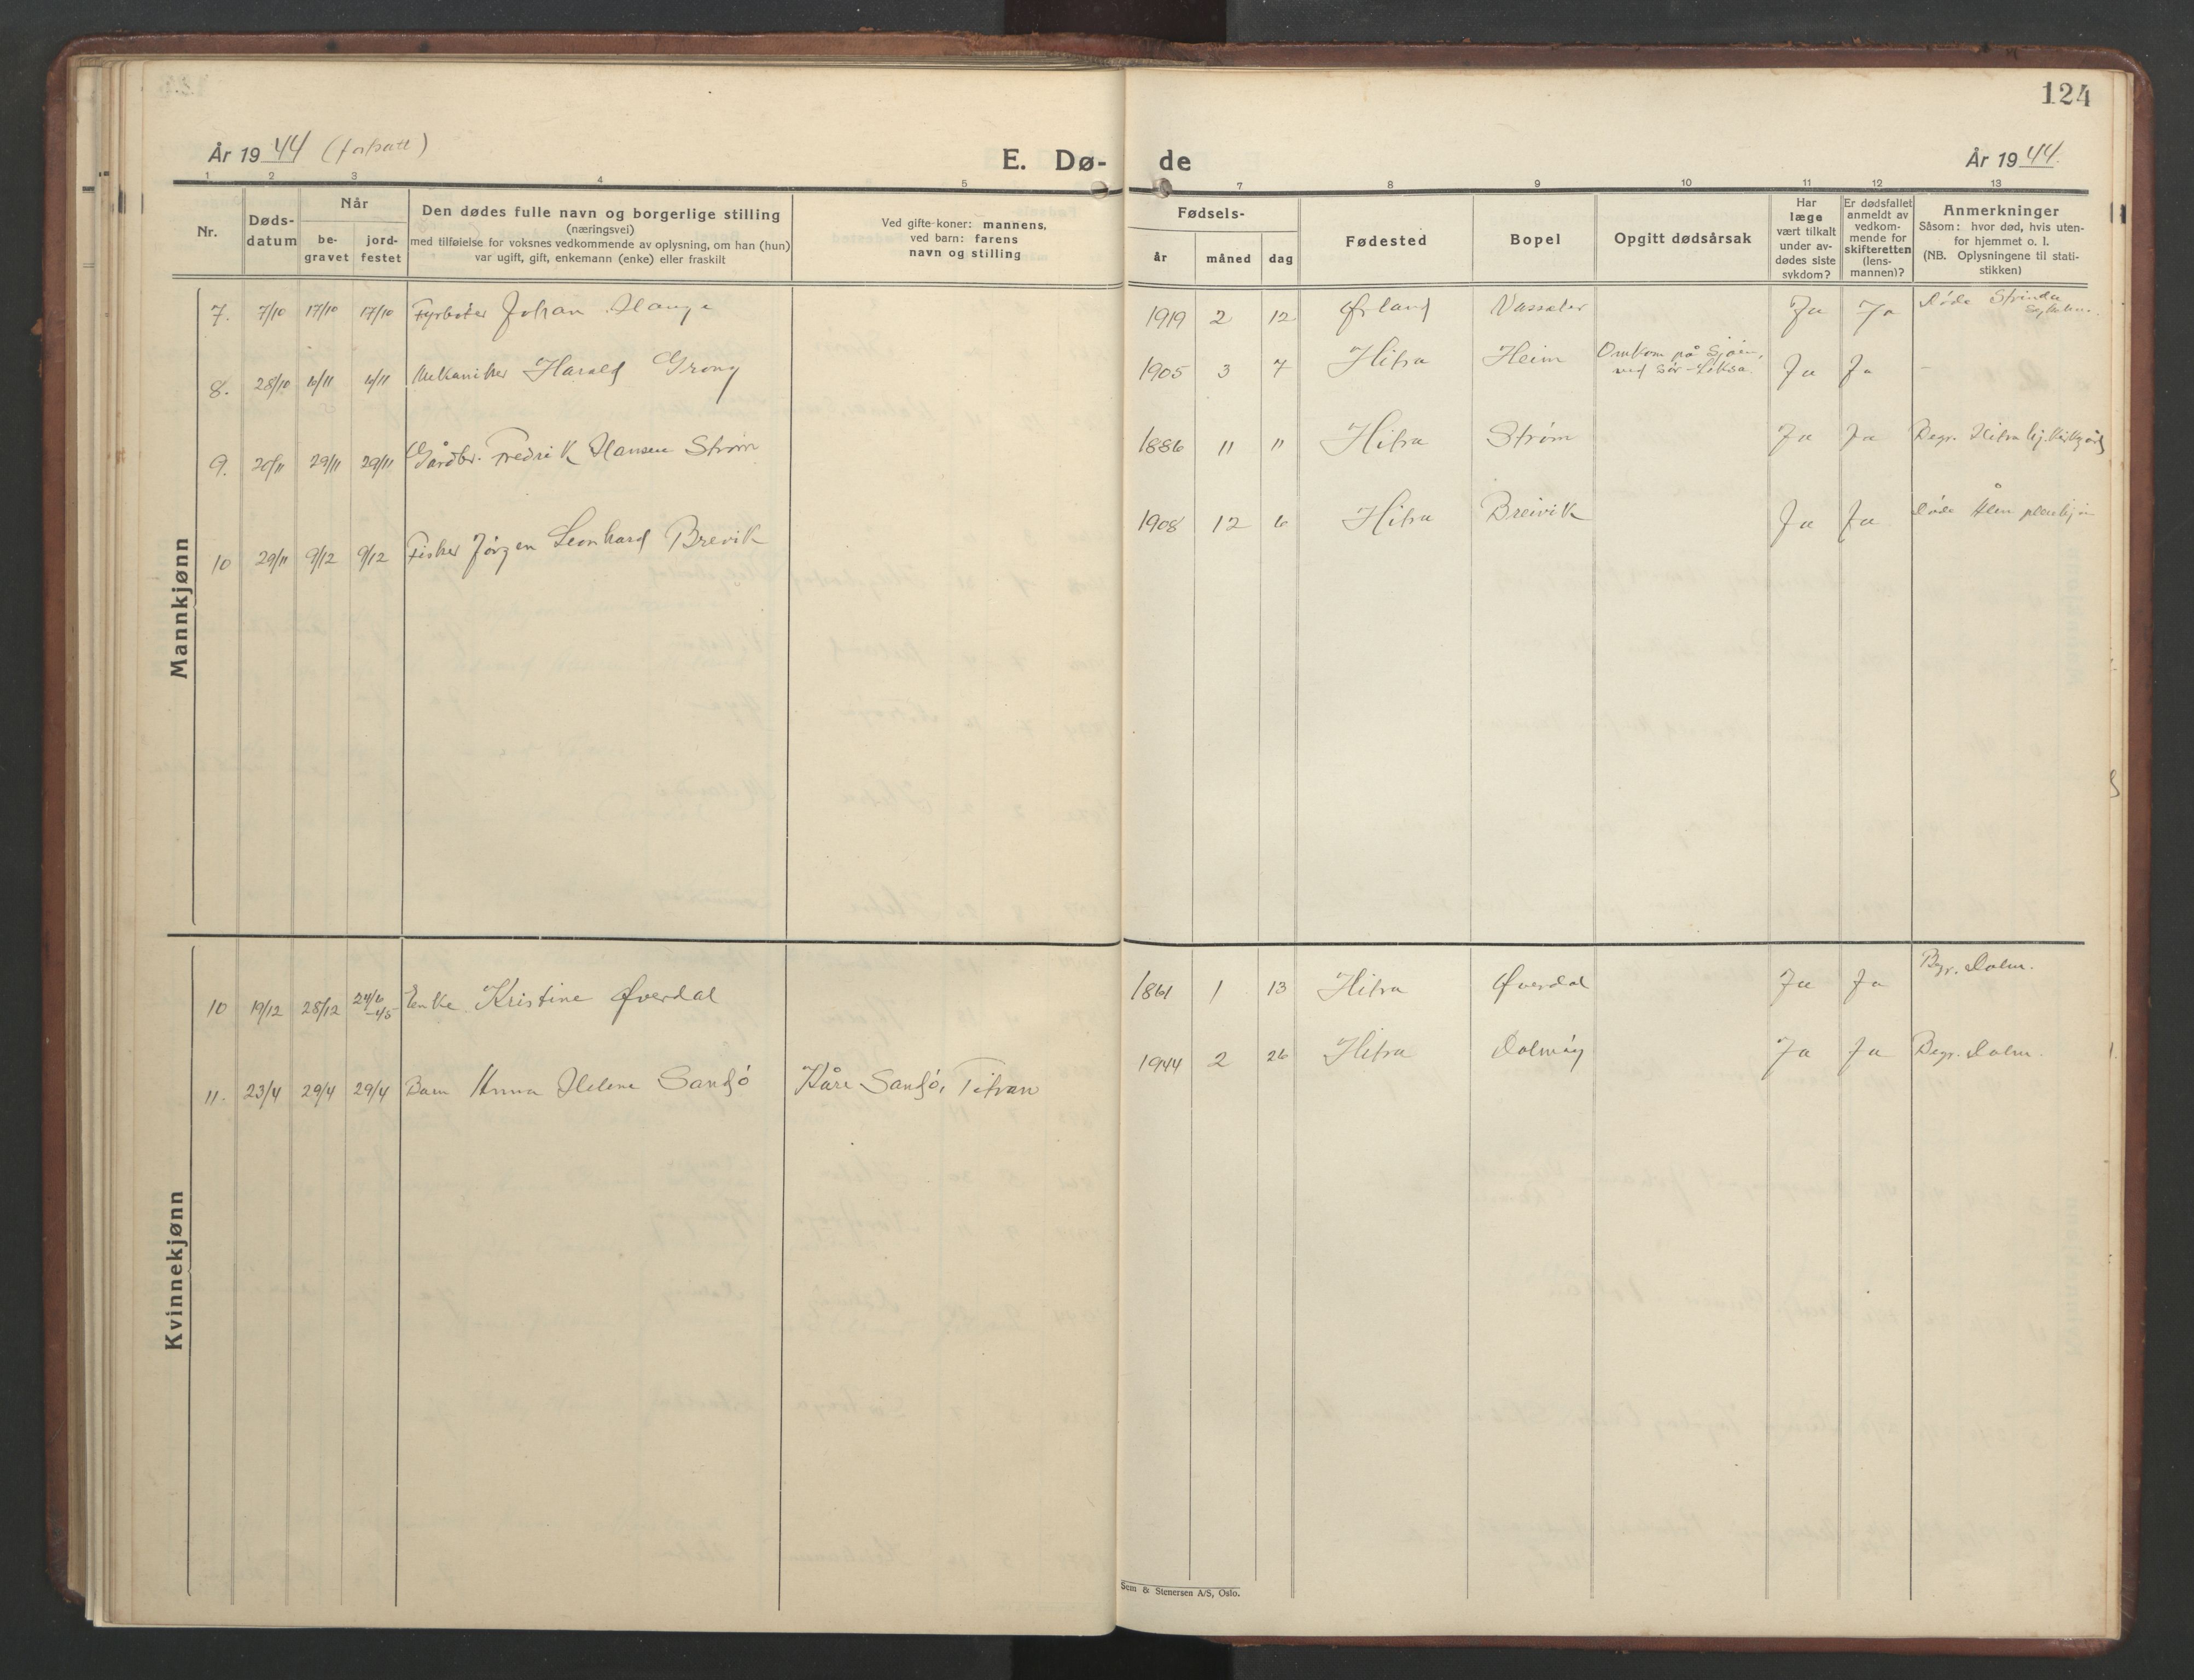 124
År 1944 (forsatt)
E. Dø-
de
År 1944.
1 2 3 4 5 7 8 9 10 11 12 13
Nr.
Døds-
datum
Når
be-
gravet
jord-
festet
Den dødes fulle navn og borgerlige stilling
(næringsvei)
med tilføielse for voksnes vedkommende av oplysning, om han (hun)
var ugift, gift, enkemann (enke) eller fraskilt
Ved gifte koner: mannens,
ved barn: farens
navn og stilling
Fødsels-
år
måned
dag
Fødested
Bopel
Opgitt dødsårsak
Har
læge
vært tilkalt
under av-
dødes siste
sykdom?
Er dødsfallet
anmeldt av
vedkom-
mende for
skifteretten
(lens-
mannen)?
Anmerkninger
Såsom: hvor død, hvis uten-
for hjemmet o. l.
(NB. Oplysningene til stati-
stikken)
Mannkjønn
7. 7/10 17/10 17/10 Fyrbøter Johan Hauge 1919 2 12 Ørland Ja Ja Døde Strinda
8. 28/10 Mekaniker Harald Grong 1905 3 7 Hitra Heim Omkom på Sjøen, Ja Ja
ved Sør-
9. 20/11 29/11 29/11 Gårdbr. Fredrik Hansen Strøm 1886 11 11 Hitra Strøm Ja Ja Begr. Hitra
10 29/11 9/12 9/12 Fisker Jørgen Leonhard Brevik 1908 12 6 Hitra Breivik Ja Ja Døde
Kvinnekjønn
10 19/12 28/12 24/6 -45 Enke Kristine Øverdal 1861 1 13 Hitra Øverdal Ja Ja Begr. Dolm.
11. 23/4 29/4 29/4 Barn Anna Helene Sandø Kåre Sandø, Titran 1944 2 26 Hitra Dolmøy Ja Ja Begr. Dolm.
Sem & Stenersen A/S, Oslo.